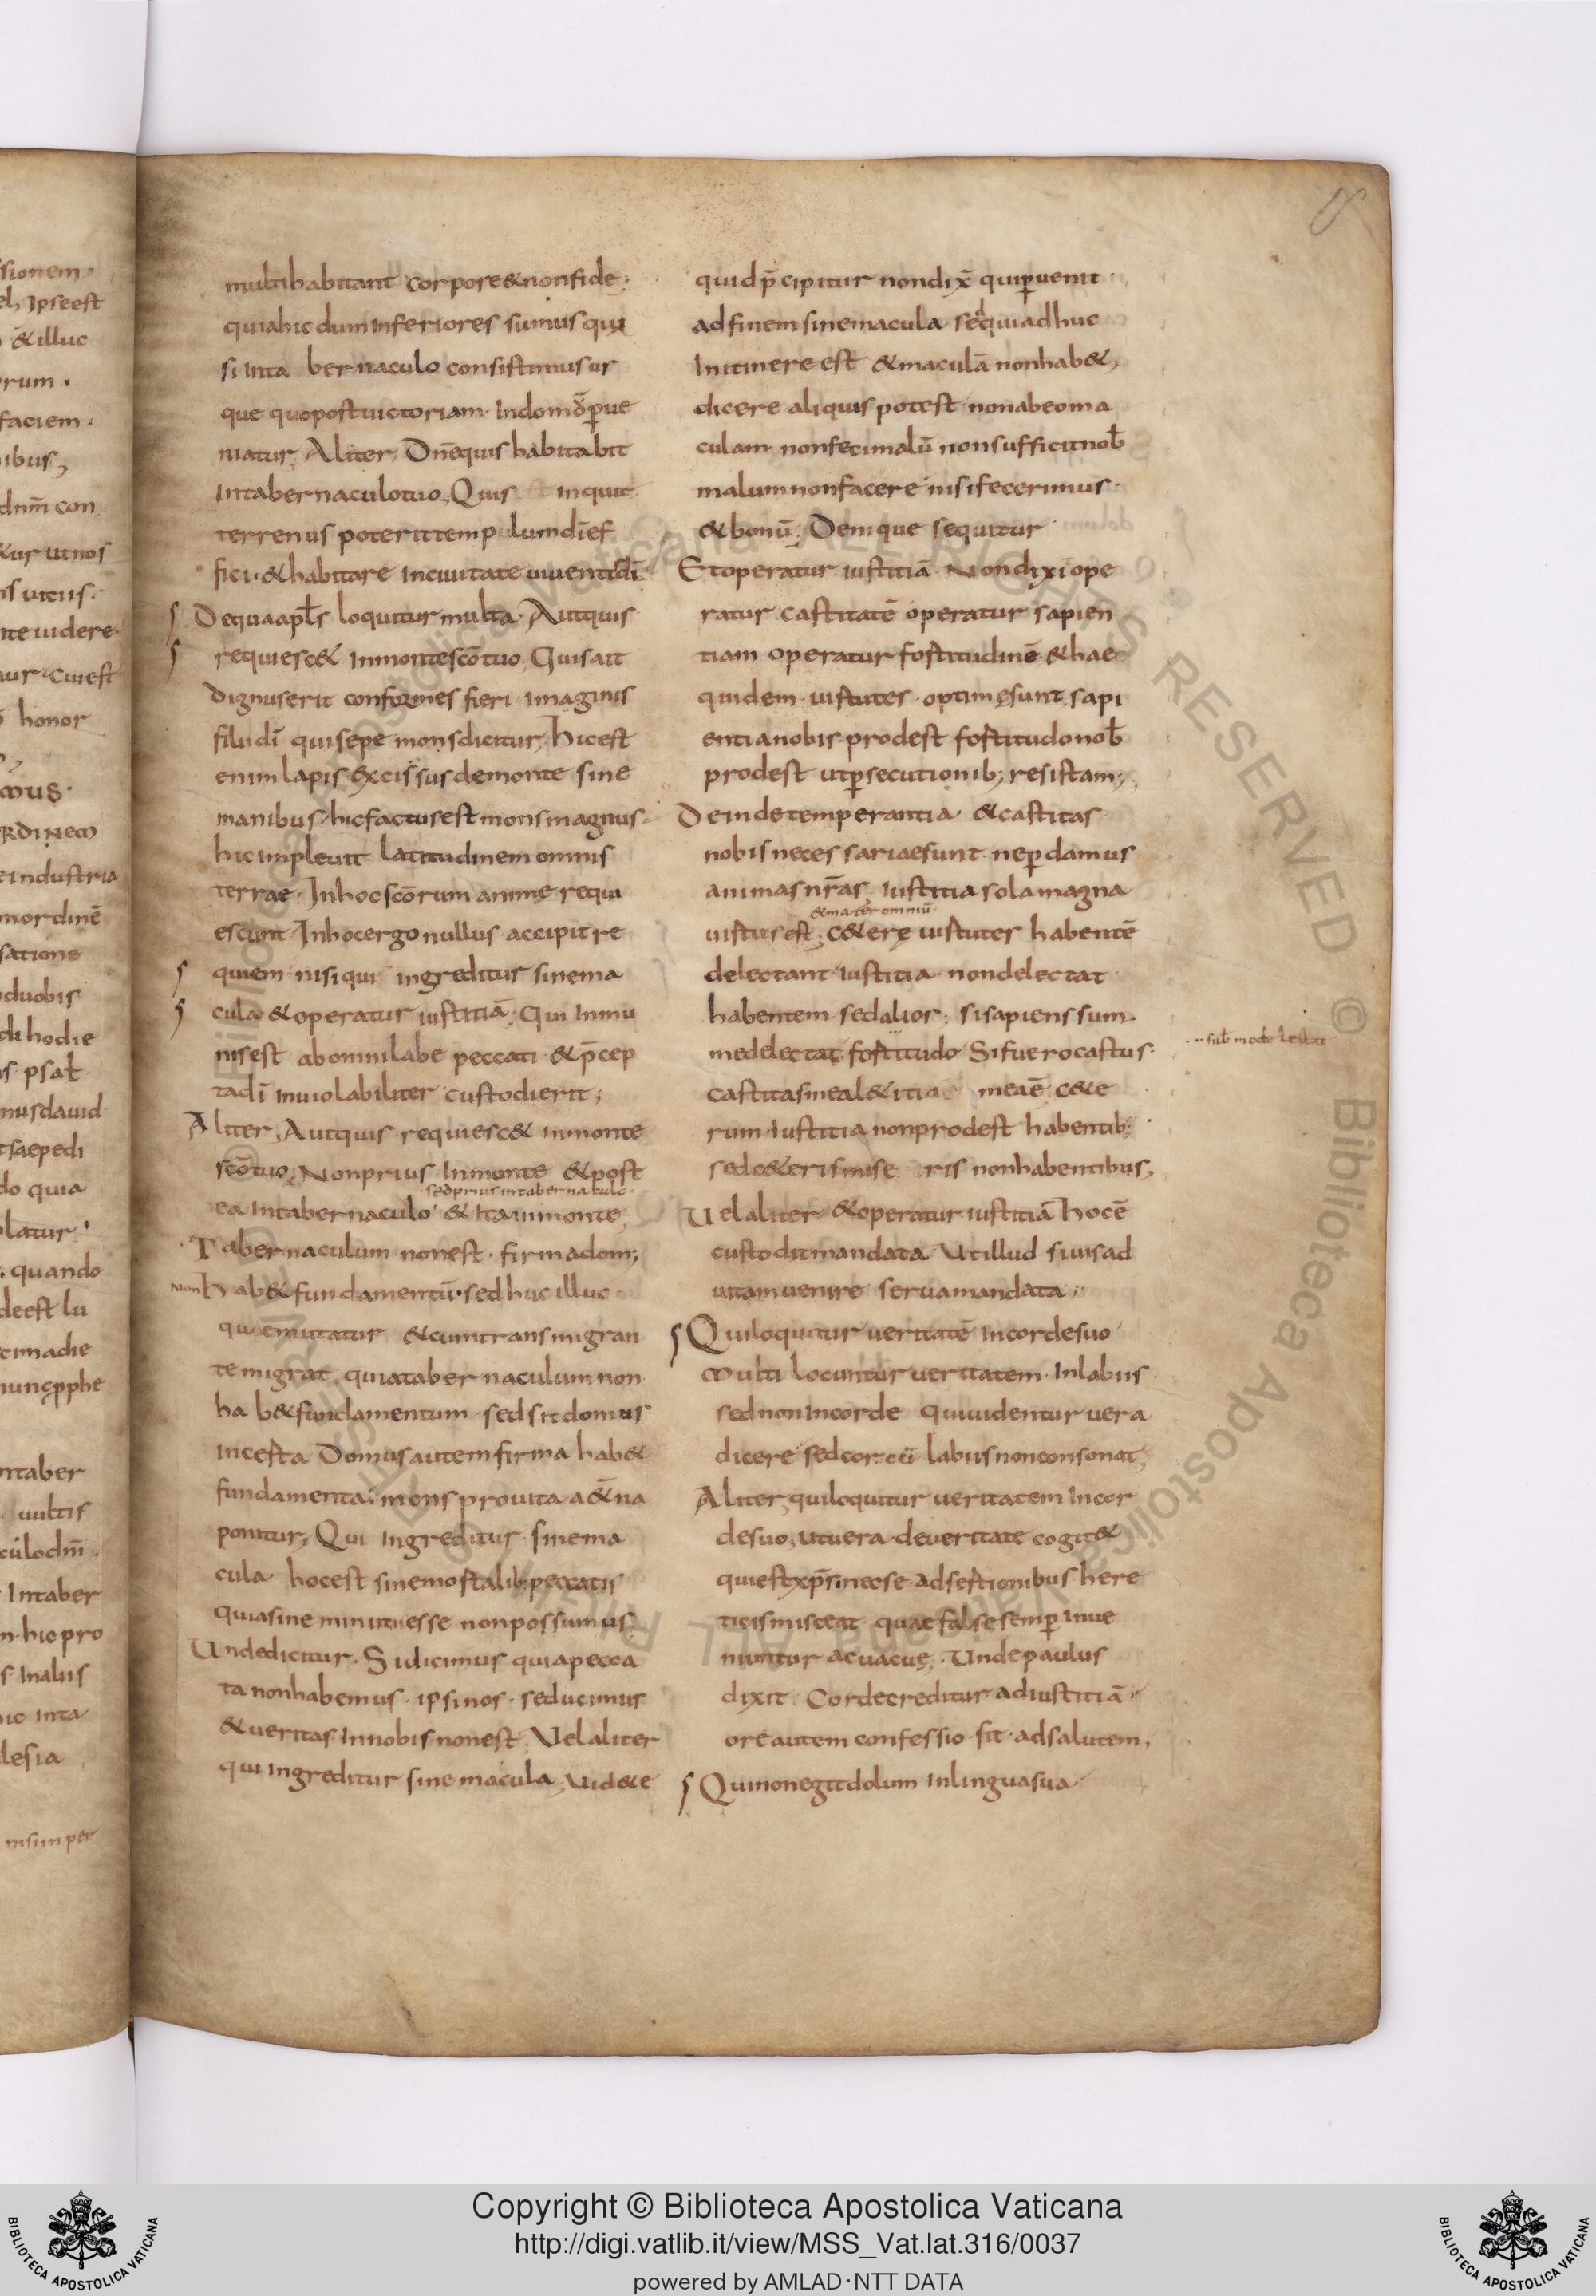 multi habitant corpore & non fide;
quia hic dum inferiores sumus qua
si inta bernaculo consistimus us
que quo post uictoriam in domo perue
niatur, Aliter, Dn̄e quis habitabit
in tabernaculo tuo, Quis inquit
terrenus poterit templum dī ef
fici · & habitare in ciuitate uiuentis dī
De qua apl̄s loquitur multa, Aut quis
requiesc& in monte sc̄o tuo, Quis ait
dignus erit conformes fieri imaginis
filii dī qui sepe mons dicitur, hic est
enim lapis excissus de monte sine
manibus, hic factus est mons magnus
hic impleuit latitudinem omnis
terrae · In hoc sc̄orum anime requi
escunt In hoc ergo nullus accipit re
quiem nisi qui ingreditur sine ma
cula & operatur iustitiā, Qui inmu
nis est ab omni labe peccati & p̄cep
ta dī inuiolabiliter custodierit;
Aliter, Aut quis requiesc& in monte
sc̄o tuo, Non prius in monte & post
sed prius in tabernaculo
ea in tabernaculo & ita in monte,
Tabernaculum non est · firma dom;
non hab& fundamentū · sed huc illuc
que mutatur & cum transmigran
te migrat · quia tabernaculum non
hab& fundamentum sed sit domus
incesta Domus autem firma hab&
fundamenta · mons pro uita aet̄na
ponitur, Qui ingreditur sine ma
cula hoc est sine mortalib; peccatis
quia sine minutis esse non possumus,
Unde dicitur · Si dicimus quia pecca
ta non habemus · ipsi nos · seducimus
& ueritas in nobis non est, Vel aliter
qui ingreditur sine macula, Uid&e
quid p̄cipitur non dix̄ qui p̱uenit
ad finem sine macula sed qui adhuc
in itinere est & maculā non hab&,
dicere aliquis potest non abeo ma
culam non feci malū non sufficit nob̄
malum non facere nisi fecerimus
& bonū, Denique sequitur
Et operatur iustitiā Non dixi ope
ratur castitatē operatur sapien
tiam operatur fortitudinē & hae
quidem uirtutes optime sunt, sapi
entia nobis prodest fortitudo nob̄
prodest ut p̱secutionib; resistam;
Deinde temperantia & castitas
nobis necessariae sunt ne p̱damus
animas nr̄as, iustitia sola magna
& mater omniū
uirtus est, c&ere uirtutes habentē
delectant iustitia · non delectat
habentem sed alios; si sapiens sum ·
me delectat fortitudo Si fuero castus
... sub mode lestau
castitas mea l&itia mea ē c&e
rum iustitia non prodest habentib;
sed c&eris mise ris non habentibus,
Vel aliter & operatur iustitiā hoc ē
custodit mandata Ut illud si uis ad
uitam uenire serua mandata;
Qui loquitur ueritatē in corde suo
Multi locuntur ueritatem in labiis
sed non in corde qui uidentur uera
dicere sed cor cū labiis non consonat,
Aliter, qui loquitur ueritatem in cor
de suo, ut uera de ueritate cogit&
qui est xp̄s nec se adsertionibus here
ticis misceat · quae false semp̱ inue
niuntur ac uacue, Unde paulus
dixit Corde creditur ad iustitiā
ore autem confessio fit ad salutem,
Qui non egit dolum in lingua sua
Copyright © Biblioteca Apostolica Vaticana
http://digi.vatlib.it/view/MSS_Vat.lat.316/0037
powered by AMLAD·NTT DATA